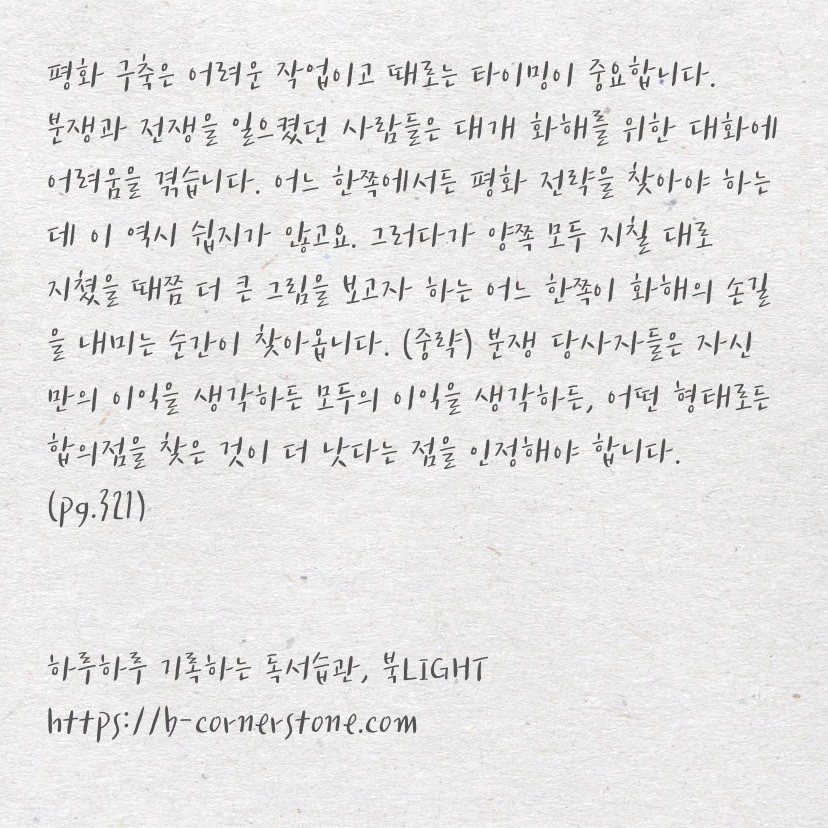 평화 구축은 어려운 작업이고 때로는 타이밍이 중요합니다.
분쟁과 전쟁을 일으켰던 사람들은 대개 화해를 위한 대화에
어려움을 겪습니다. 어느 한쪽에서든 평화 전략을 찾아야 하는
데 이 역시 쉽지가 않고요. 그러다가 양쪽 모두 지칠 대로
지쳤을 때쯤 더 큰 그림을 보고자 하는 어느 한쪽이 화해의 손길
을 내미는 순간이 찾아옵니다. (중략) 분쟁 당사자들은 자신
만의 이익을 생각하든 모두의 이익을 생각하든, 어떤 형태로든
합의점을 찾은 것이 더 낫다는 점을 인정해야 합니다.
(pg.321)
하루하루 기록하는 독서습관, 북LIGHT
https://b-cornerstone.com